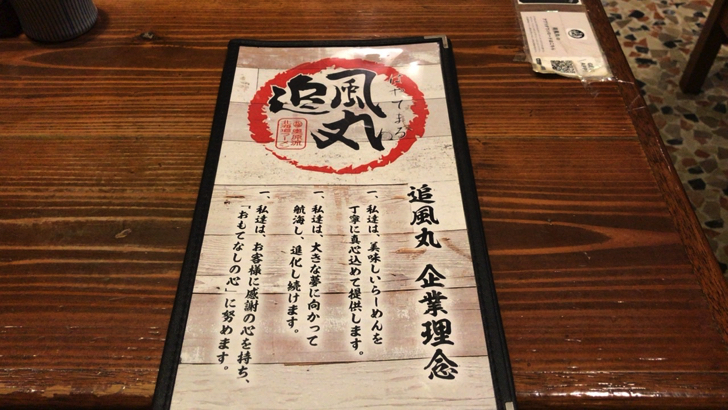 追風丸
追風丸 企業理念
一、私達は、美味しいらーめんを
丁寧に真心込めて提供します。
一、私達は、大きな夢に向かって
航海し、進化し続けます。
一、私達は、お客様に感謝の心を持ち、
「おもてなしの心」に努めます。